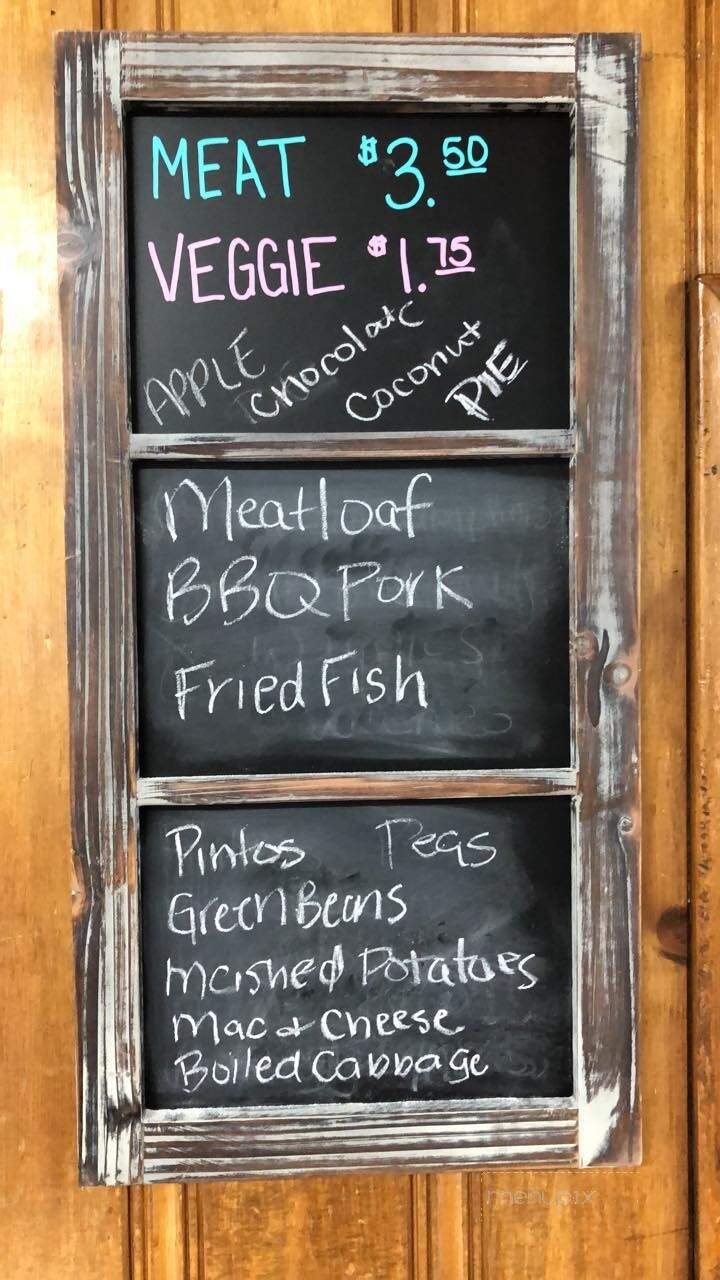 MEAT $3.50
VEGGIE $1.75
APPLE Chocolate Coconut PIE
Meatloaf
BBQ Pork
Fried Fish
Pintos Peas
Green Beans
Mashed Potatoes
Mac & Cheese
Boiled Cabbage
menupix